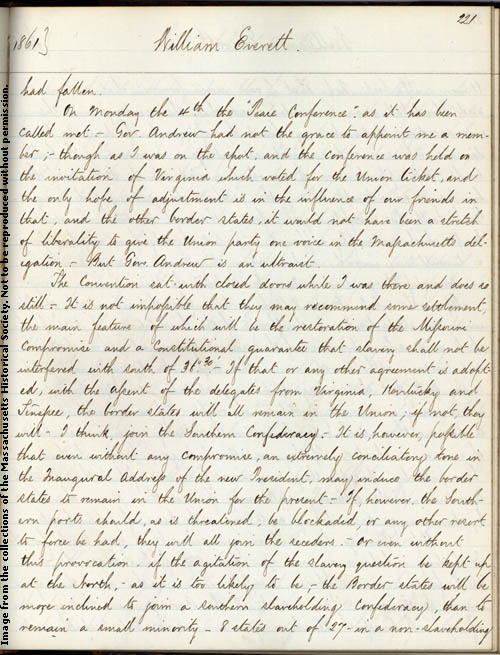 221
[1861] William Everett.
had fallen.
On Monday the 4th the "Peace Conference", as it has been
called met – Gov. Andrew had not the grace to appoint me a mem-
ber; – though as I was on the spot, and the conference was held on
the invitation of Virginia which voted for the Union ticket, and
the only hope of adjustment is in the influence of our friends in
that, and the other border states, it would not have been a stretch
of liberality to give the Union party one voice in the Massachusetts del-
egation. – But Gov. Andrew is an ultraist.
The Convention sat with closed doors while I was there and does so
still – It is not impossible that they may recommend some settlement,
the main feature of which will be the restoration of the Missouri
Compromise and a Constitutional guarantee that slavery shall not be
interfered with south of 36°30 – If that or any other agreement is adopt-
ed, with the assent of the delegates from Virginia, Kentucky and
Tenessee, the border states will all remain in the Union; if not, they
will – I think, join the Southern Confederacy. – It is, however, possible
that even without any compromise, an extremely conciliatory tone in
the Inaugural Address of the new President, may induce the border
states to remain in the Union for the present – If, however, the South-
ern ports should, as is threatened, be blockaded, or any other resort
to force be had, they will all join the seceders – or even without
this provocation, if the agitation of the slavery question be kept up
at the North, – as it is too likely to be, – the Border states will be
more inclined to join a southern slaveholding Confederacy, than to
remain a small minority – 8 states out of 27 – in a non-slaveholding
Image from the collections of the Massachusetts Historical Society. Not to be reproduced without permission.